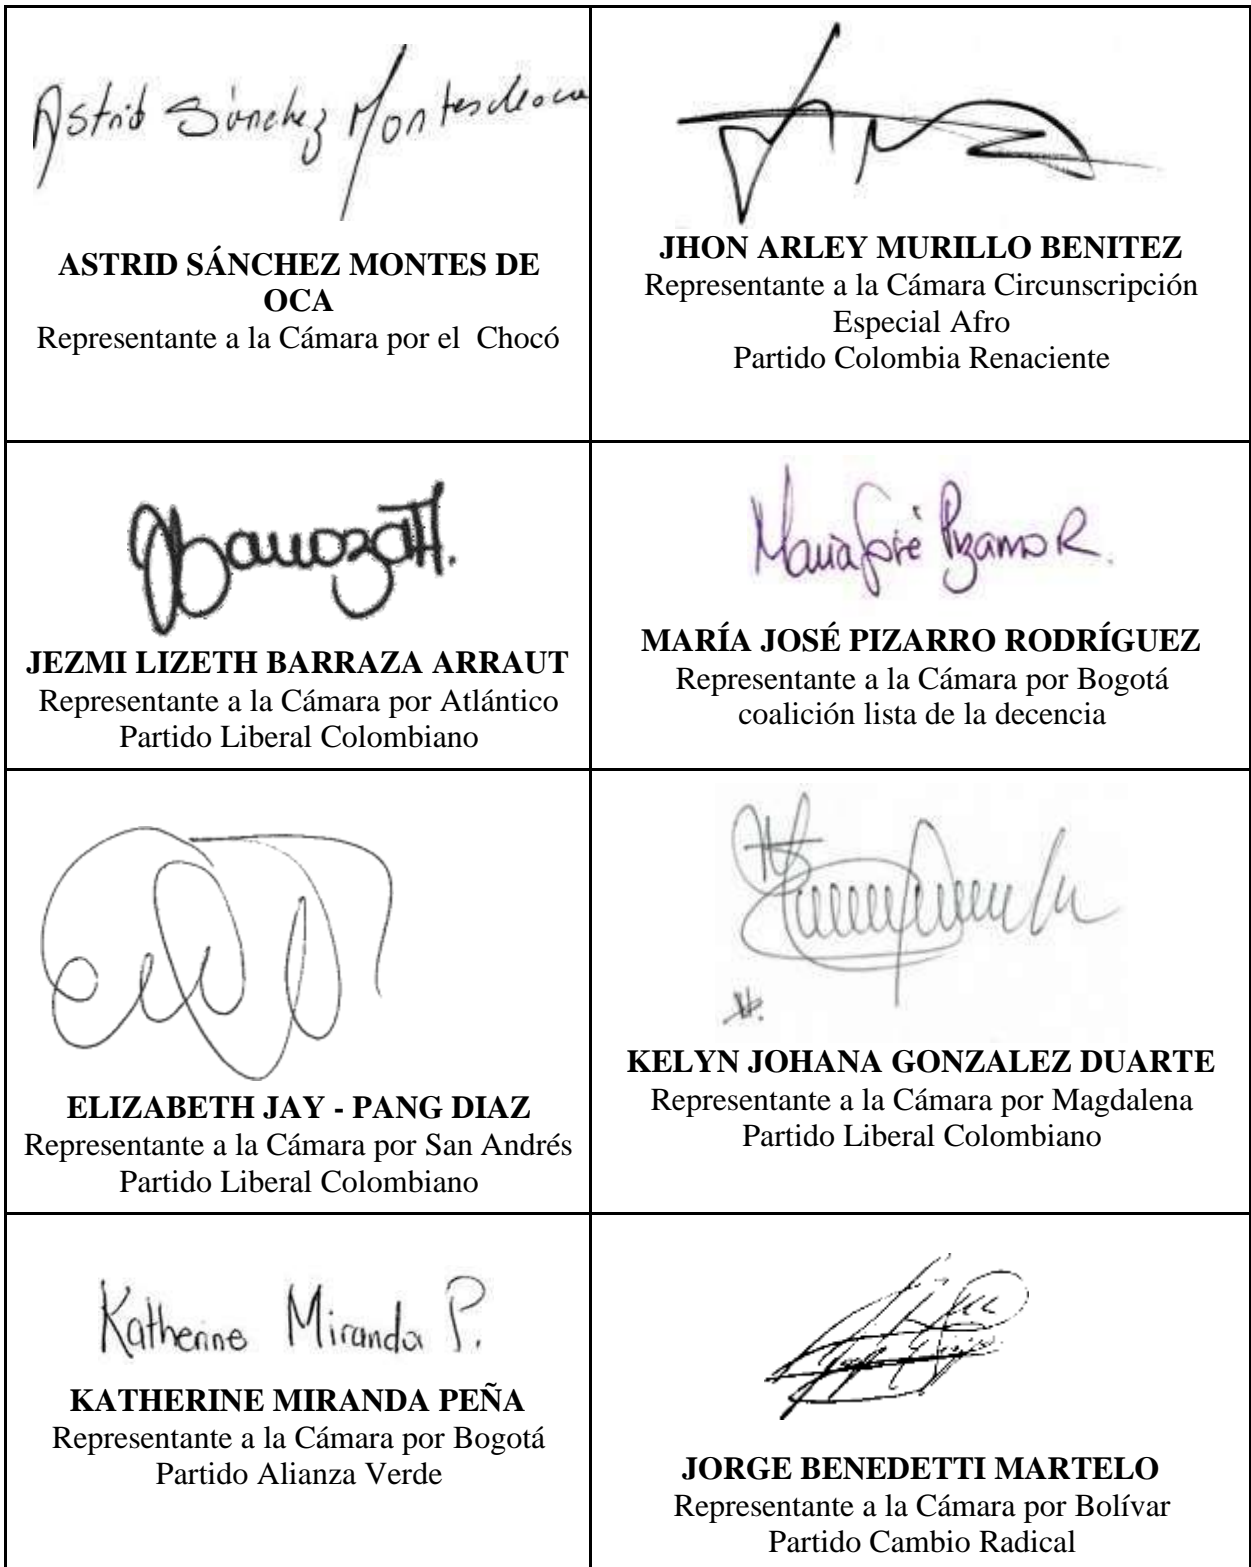 Astrid Sánchez Montesdeoca
ASTRID SÁNCHEZ MONTES DE
OCA
Representante a la Cámara por el Chocó
JHON ARLEY MURILLO BENITEZ
Representante a la Cámara Circunscripción
Especial Afro
Partido Colombia Renaciente
JEZMI LIZETH BARRAZA ARRAUT
Representante a la Cámara por Atlántico
Partido Liberal Colombiano
María José Pizarro R.
MARÍA JOSÉ PIZARRO RODRÍGUEZ
Representante a la Cámara por Bogotá
coalición lista de la decencia
ELIZABETH JAY - PANG DIAZ
Representante a la Cámara por San Andrés
Partido Liberal Colombiano
KELYN JOHANA GONZALEZ DUARTE
Representante a la Cámara por Magdalena
Partido Liberal Colombiano
Katherine Miranda P.
KATHERINE MIRANDA PEÑA
Representante a la Cámara por Bogotá
Partido Alianza Verde
JORGE BENEDETTI MARTELO
Representante a la Cámara por Bolívar
Partido Cambio Radical